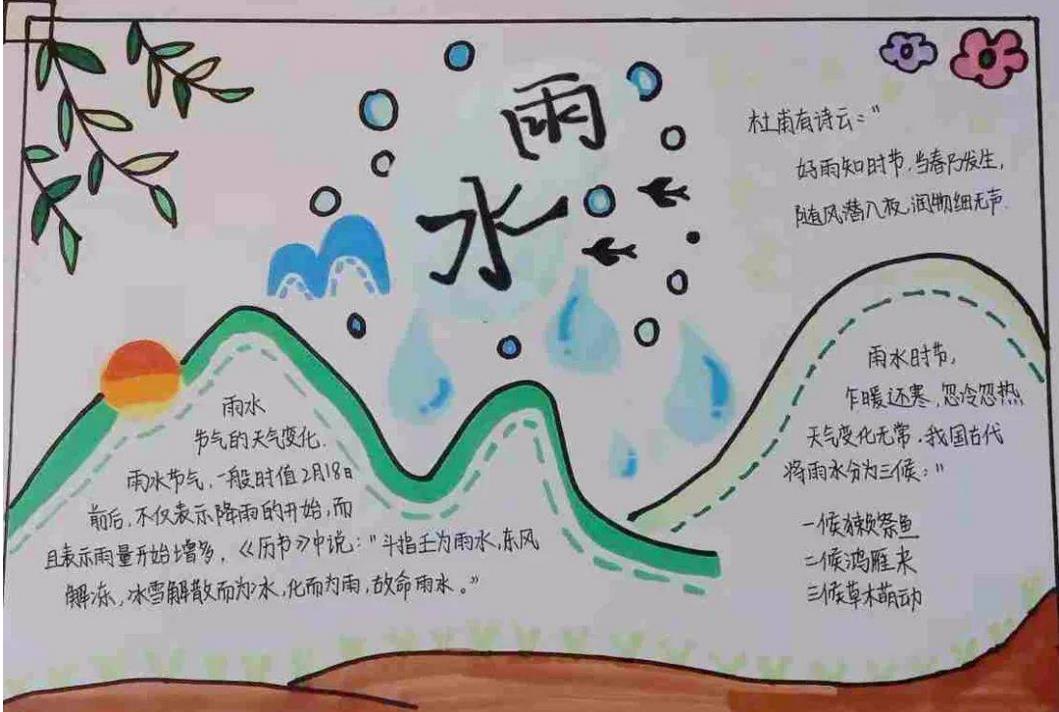 雨
水
杜甫有诗云："
好雨知时节,当春乃发生,
随风潜入夜,润物细无声.
雨水
节气的天气变化.
雨水节气,一般时值2月18日
前后,不仅表示降雨的开始,而
且表示雨量开始增多,《历书》中说:"斗指壬为雨水,东风
解冻,冰雪解散而为水,化而为雨,故命雨水。"
雨水时节,
乍暖还寒,忽冷忽热
天气变化无常.我国古代
将雨水分为三候："
一候獭祭鱼
二候鸿雁来
三候草木萌动